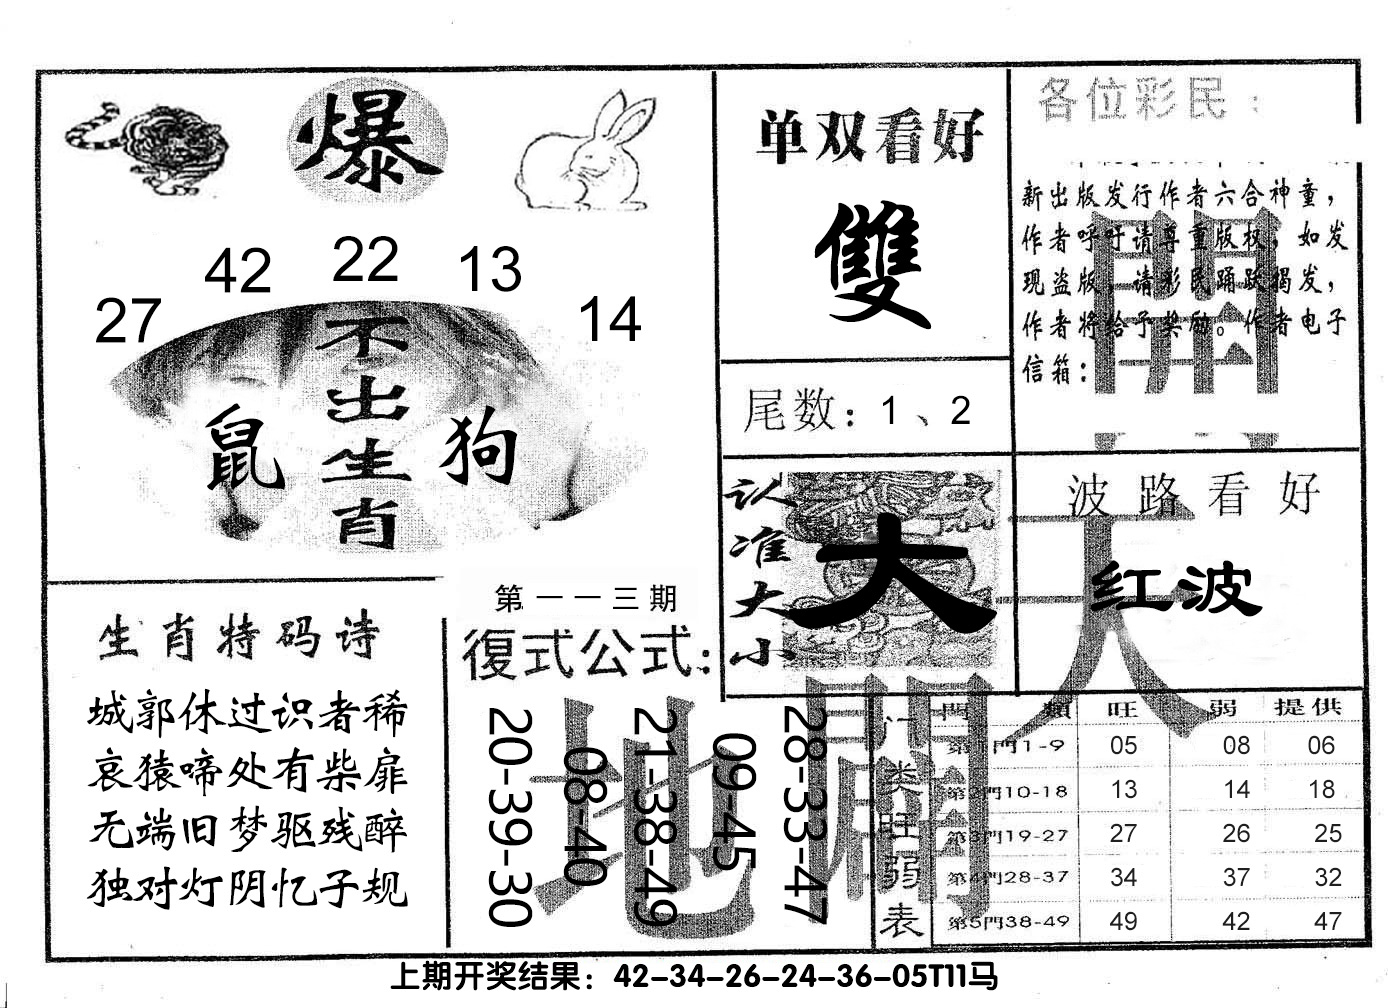 爆
27
42
22
13
14
不出生肖
鼠
狗
单双看好
雙
尾数：1、2
各位彩民：
新出版发行作者六合神童，
作者呼吁请尊重版权，如发
现盗版，请彩民踊跃揭发，
作者将给予奖励。作者电子
信箱：
认准大小
大
波路看好
红波
天
地
開
開
生肖特码诗
城郭休过识者稀
哀猿啼处有柴扉
无端旧梦驱残醉
独对灯阴忆子规
第一一三期
復式公式：
20-39-30
08-40
21-38-49
09-45
28-33-47
门类旺弱表
門類 旺 弱 提供
第1門1-9 05 08 06
第2門10-18 13 14 18
第3門19-27 27 26 25
第4門28-37 34 37 32
第5門38-49 49 42 47
上期开奖结果：42-34-26-24-36-05T11马